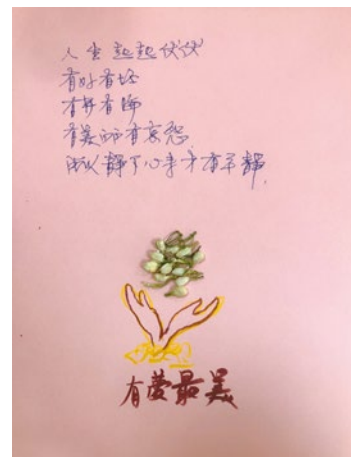 人生起起伏伏
有好有坏
有升有降
有美的有哀怨
所以静下心来才有平静
有梦最美